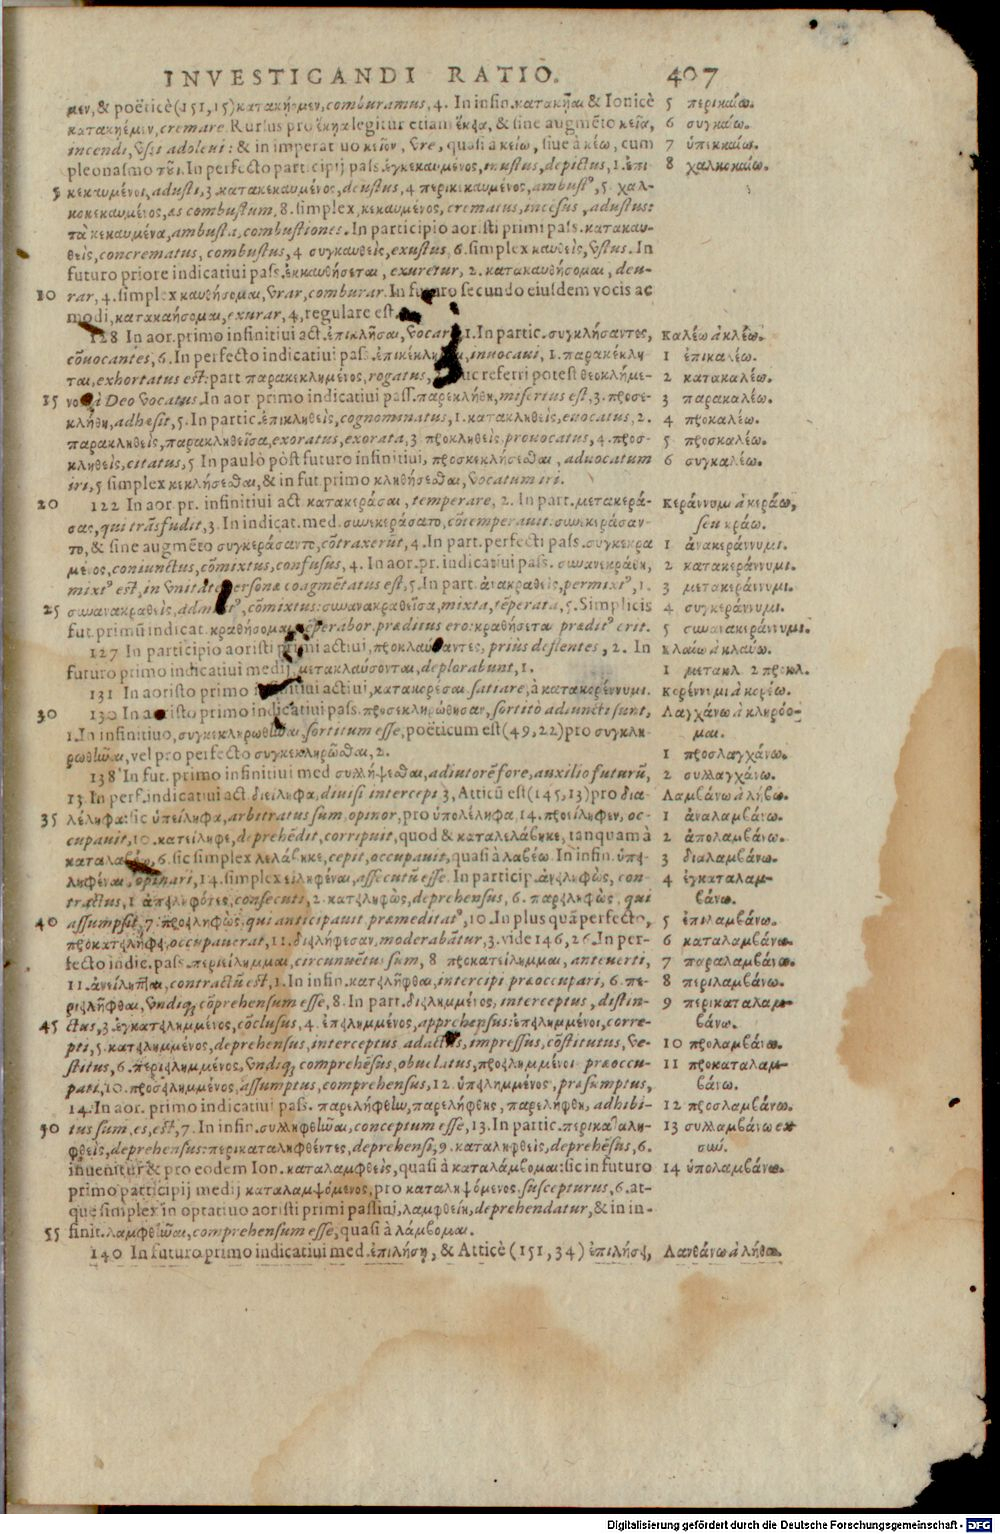 INVESTIGANDI RATIO. 407
μεν, & poëticè (151, 15) κατακήομεν, comburamus, 4. In infin. κατακῆαι & Ionicè
κατακηέμεν, cremare. Rursus pro ἔκηα legitur etiam ἔκεια, & sine augmẽto κεῖα,
incendi, vssi adoleui: & in imperatiuo κεῖον, vre, quasi à κείω, siue à κέω, cum
pleonasmo τοῦ ι. In perfecto participij pass. ἐγκεκαυμένος, inustus, depictus, 1. ἐπι-
5 κεκαυμένοι, adusti, 3. κατακεκαυμένος, deustus, 4 περικεκαυμένος, ambust⁹, 5. χαλ-
κοκεκαυμένος, as combustum, 8. simplex, κεκαυμένος, crematus, incẽsus, adustus:
τὰ κεκαυμένα, ambusta, combustiones. In participio aoristi primi pass. κατακαυ-
θεὶς, concrematus, combustus, 4 συγκαυθεὶς, exustus, 6. simplex καυθεὶς, vstus. In
futuro priore indicatiui pass. ἐκκαυθήσεται, exuretur, 2. κατακαυθήσομαι, deu-
10 rar, 4. simplex καυθήσομαι, vrar, comburar. In futuro secundo eiusdem vocis ac
modi, κατακαήσομαι, exurar, 4, regulare est.
128 In aor. primo infinitiui act. ἐπικλῆσαι, vocare 1. In partic. συγκλήσαντες,
cõuocantes, 6. In perfecto indicatiui pass. ἐπικέκλημαι, inuocaui, 1. παρακέκλη-
ται, exhortatus est: part παρακεκλημένος, rogatus, huc referri potest θεοκλήμε-
15 νος à Deo vocatus. In aor primo indicatiui pass. παρεκλήθη, misertus est, 3. προσε-
κλήθη, adhesit, 5. In partic. ἐπικληθεὶς, cognominatus, 1. κατακληθεὶς, euocatus, 2.
παρακληθεὶς, παρακληθεῖσα, exoratus, exorata, 3 προκληθεὶς prouocatus, 4. προσ-
κληθεὶς, citatus, 5 In paulò pòst futuro infinitiui, προσκεκλήσεσθαι, aduocatum
iri, 5 simplex κεκλήσεσθαι, & in fut. primo κληθήσεσθαι, vocatum iri.
20 122 In aor. pr. infinitiui act κατακεράσαι, temperare, 2. In part. μετακερά-
σας, qui trãsfudit, 3. In indicat. med. συνεκεράσατο, cõtemperauit: συνεκεράσαν-
το, & sine augmẽto συγκεράσαντο, cõtraxerũt, 4. In part. perfecti pass. σύγκεκρα
μένος, coniunctus, cõmixtus, confusus, 4. In aor. pr. indicatiui pass. συνανεκράθη,
mixt⁹ est, in vnitatẽ personæ coagmẽtatus est, 5. In part. ἀνακραθεὶς, permixt⁹, 1.
25 συνανακραθεὶς, admixt⁹, cõmixtus: συνανακραθεῖσα, mixta, tẽperata, 5. Simplicis
fut. primũ indicat. κραθήσομαι, tẽperabor. præditus ero: κραθήσεται prædit⁹ erit.
127 In participio aoristi primi actiui, προκλαύσαντες, prius deflentes, 2. In
futuro primo indicatiui medij, μετακλαύσονται, deplorabunt, 1.
131 In aoristo primo infinitiui actiui, κατακορέσαι satiare, à κατακορέννυμι.
30 130 In aoristo primo indicatiui pass. προσεκληρώθησαν, sortitò adiuncti sunt,
1. In infinitiuo, συγκεκληρωθῶσαι, sortitum esse, poëticum est (49, 22) pro συγκλη-
ρωθῆναι, vel pro perfecto συγκεκληρῶσθαι, 2.
138 In fut. primo infinitiui med συλλήψεσθαι, adiutorẽ fore, auxilio futurũ,
13. In perf. indicatiui act. διείληφα, diuisi intercepi 3, Atticũ est (145, 13) pro δια-
35 λέληφα: sic ὑπείληφα, arbitratus sum, opinor, pro ὑπολέληφα, 14. προείληφεν, oc-
cupauit, 10. κατείληφε, deprehẽdit, corripuit, quod & καταλελάβηκε, tanquam à
καταλαβέω, 6. sic simplex λελάβηκε, cepit, occupauit, quasi à λαβέω. In infin. ὑπει-
ληφέναι, opinari, 14. simplex εἰληφέναι, assecutũ esse. In particip. ἀνειληφὼς, con-
tractus, 1 ἀπειληφότες, consecuti, 2. κατειληφὼς, deprehensus, 6. παρειληφὼς, qui
40 assumpsit, 7: προειληφὼς, qui anticipauit, præmeditat⁹, 10. In plus quã perfecto,
προκατειλήφει, occupauerat, 11. διειλήφεσαν, moderabãtur, 3. vide 146, 26. In per-
fecto indic. pass. περιείλημμαι, circunuẽtus sum, 8 προκατείλημμαι, anteuerti,
11. ἀνείληπται, contractũ est, 1. In infin. κατειλῆφθαι, intercipi præoccupari, 6. πε-
ριειλῆφθαι, vndiq; cõprehensum esse, 8. In part. διειλημμένος, interceptus, distin-
45 ctus, 3. ἐγκατειλημμένος, cõclusus, 4. ἐπειλημμένος, apprehensus: ἐπειλημμένοι, corre-
pti, 5. κατειλημμένος, deprehensus, interceptus adactus, impressus, cõstitutus, ve-
stitus, 6. περιειλημμένος, vndiq; comprehẽsus, obuelatus, προειλημμένοι præoccu-
pati, 10. προσειλημμένος, assumptus, comprehensus, 12. ὑπειλημμένος, præsumptus,
14. In aor. primo indicatiui pass. παρελήφθην, παρελήφθης, παρελήφθη, adhibi-
50 tus sum, es, est, 7. In infin. συλληφθῆναι, conceptum esse, 13. In partic. περικαταλη-
φθεὶς, deprehensus: περικαταληφθέντες, deprehensi, 9. καταληφθεὶς, deprehẽsus, 6.
inuenitur & pro eodem Ion. καταλαμφθεὶς, quasi à καταλάμβομαι: sic in futuro
primo participij medij καταλαμψόμενος, pro καταληψόμενος suscepturus, 6. at-
que simplex in optatiuo aoristi primi passiui, λαμφθείη, deprehendatur, & in in-
55 finit. λαμφθῆναι, comprehensum esse, quasi à λάμβομαι.
140 In futuro primo indicatiui med. ἐπιλήση, & Atticè (151, 34) ἐπιλήσει,
5 περικαίω.
6 συγκαίω.
7 ὑπεκκαίω.
8 χαλκοκαίω.
Καλέω à κλέω.
1 ἐπικαλέω.
2 κατακαλέω.
3 παρακαλέω.
4 προκαλέω.
5 προσκαλέω.
6 συγκαλέω.
Κεράννυμι à κεράω,
seu κράω.
1 ἀνακεράννυμι.
2 κατακεράννυμι.
3 μετακεράννυμι.
4 συγκεράννυμι.
5 συνανακεράννυμι.
Κλαίω à κλαύω.
1 μετακλ. 2 προκλ.
Κορέννυμι à κορέω.
Λαγχάνω à κληρόο-
μαι.
1 προσλαγχάνω.
2 συλλαγχάνω.
Λαμβάνω à λήβω.
1 ἀναλαμβάνω.
2 ἀπολαμβάνω.
3 διαλαμβάνω.
4 ἐγκαταλαμ-
βάνω.
5 ἐπιλαμβάνω.
6 καταλαμβάνω.
7 παραλαμβάνω.
8 περιλαμβάνω.
9 περικαταλαμ-
βάνω.
10 προλαμβάνω.
11 προκαταλαμ-
βάνω.
12 προσλαμβάνω.
13 συλλαμβάνω ex
σύν.
14 ὑπολαμβάνω.
Λανθάνω à λήθω.
Digitalisierung gefördert durch die Deutsche Forschungsgemeinschaft - DFG